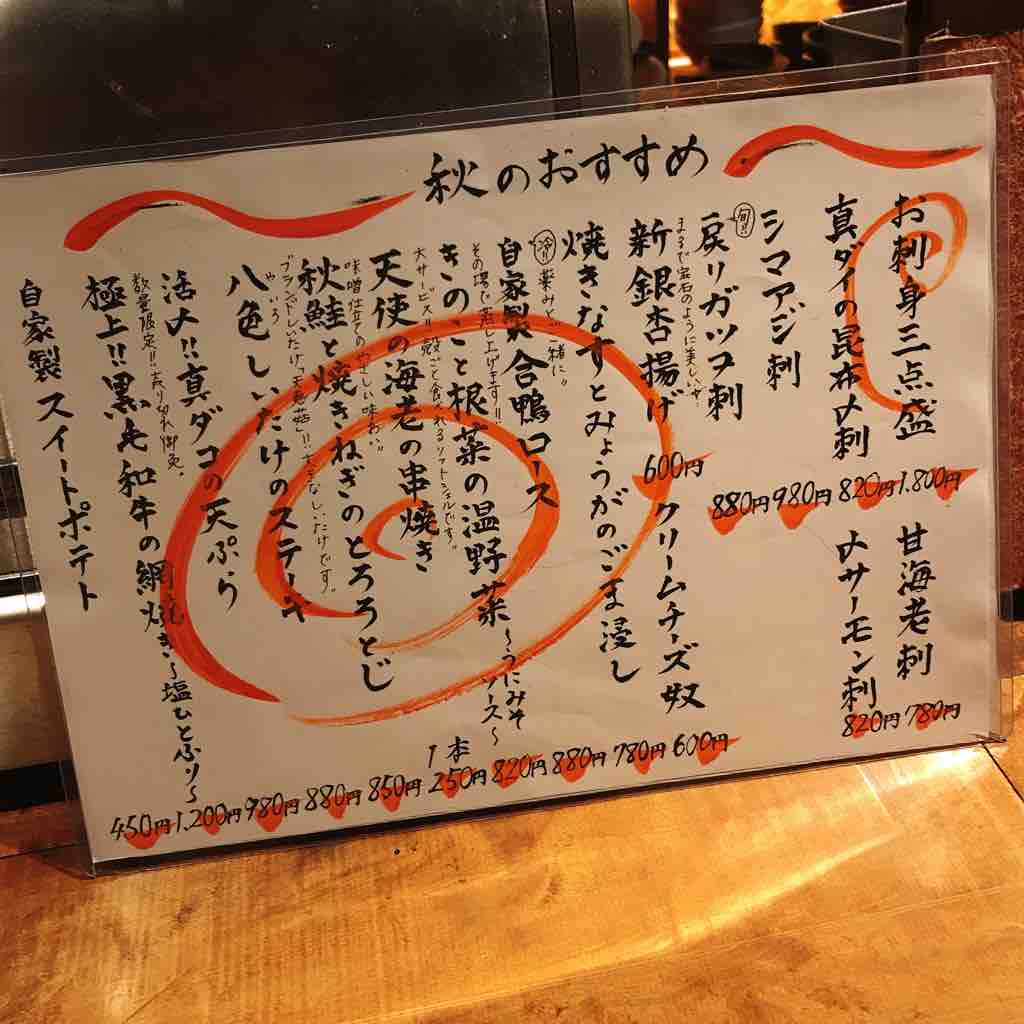 秋のおすすめ
お刺身三点盛 1.800円
甘海老刺 780円
真ダイの昆布〆刺 820円
〆サーモン刺 820円
シマアジ刺 980円
旬!!
戻りガツヲ刺 880円
まるで宝石のように美しい
新銀杏揚げ 600円
クリームチーズ奴 600円
焼きなすとみょうがのごま浸し 780円
冷!! 薬みと一緒に!!
自家製合鴨ロース 880円
その場で蒸し上げます!!
きのこと根菜の温野菜〜うにみそソース〜 820円
大サービス!!殻ごと食べれるソフトシェルです。
天使の海老の串焼き 1本 250円
味噌仕立てのやさしい味わい。
秋鮭と焼きねぎのとろろとじ 850円
ブランドしいたけ「天恵菇」!!大きなしいたけです。
やいろ
八色しいたけのステーキ 880円
活〆!!真ダコの天ぷら 980円
数量限定!!売り切れ御免。
極上!!黒毛和牛の網焼き〜塩ひとふり〜 1.200円
自家製スイートポテト 450円